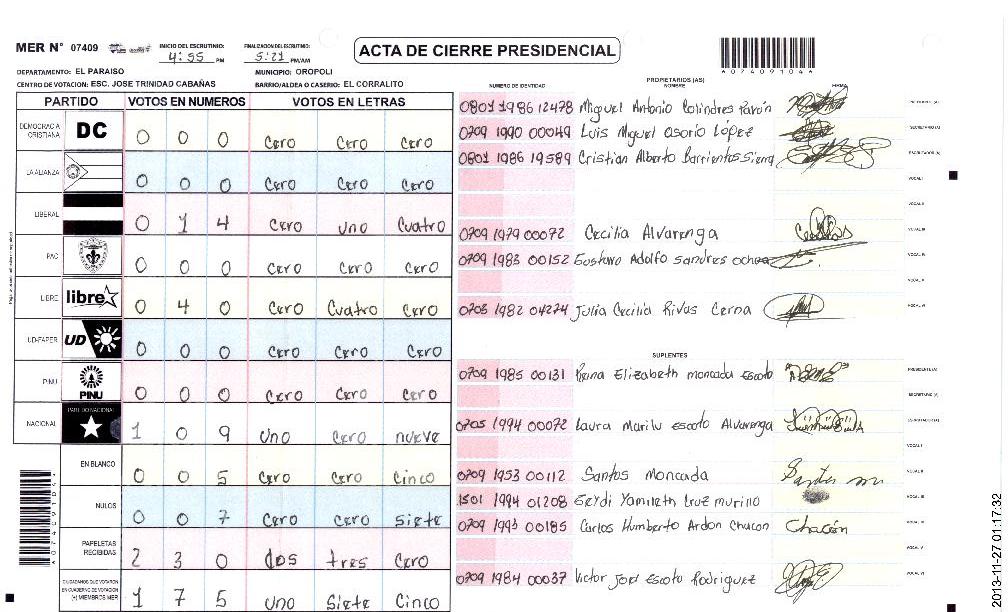 MER N° 07409 INICIO DEL ESCRUTINIO: 4:55 PM FINALIZACION DEL ESCRUTINIO: 5:21 PM/AM ACTA DE CIERRE PRESIDENCIAL
DEPARTAMENTO: EL PARAISO MUNICIPIO: OROPOLI
CENTRO DE VOTACION: ESC. JOSE TRINIDAD CABAÑAS BARRIO/ALDEA O CASERIO: EL CORRALITO
PARTIDO VOTOS EN NUMEROS VOTOS EN LETRAS
DEMOCRACIA CRISTIANA DC 0 0 0 Cero Cero Cero
LA ALIANZA 0 0 0 Cero Cero Cero
LIBERAL 0 1 4 Cero uno Cuatro
PAC 0 0 0 Cero Cero Cero
LIBRE libre 0 4 0 Cero Cuatro Cero
UD-FAPER UD 0 0 0 Cero Cero Cero
PINU PINU 0 0 0 Cero Cero Cero
NACIONAL PARTIDO NACIONAL 1 0 9 uno Cero nueve
EN BLANCO 0 0 5 Cero Cero Cinco
NULOS 0 0 7 Cero Cero Siete
PAPELETAS RECIBIDAS 2 3 0 dos tres Cero
CIUDADANOS QUE VOTARON EN CUADERNO DE VOTACION (+) MIEMBROS MER 1 7 5 uno Siete Cinco
A07409104A
PROPIETARIOS (AS)
NUMERO DE IDENTIDAD NOMBRE FIRMA
0801 1986 12478 Miguel Antonio Colindres Pavón
0709 1990 00049 Luis Miguel Osorio López
0801 1986 19589 Cristian Alberto Barrientos Sierra
0709 1979 00072 Cecilia Alvarenga
0709 1983 00152 Gustavo Adolfo Sandres Ochoa
0703 1982 04274 Julia Cecilia Rivas Cerna
SUPLENTES
0709 1985 00131 Reina Elizabeth moncada Escoto
0705 1994 00072 Laura Marilu escoto Alvarenga
0709 1953 00112 Santos Moncada
1501 1994 01208 Cruz murino
0709 1993 00185 Carlos Humberto Ardon Chacon Chacón
0709 1984 00037 Victor Jose Escoto Rodriguez
2013-11-27 01:17:32